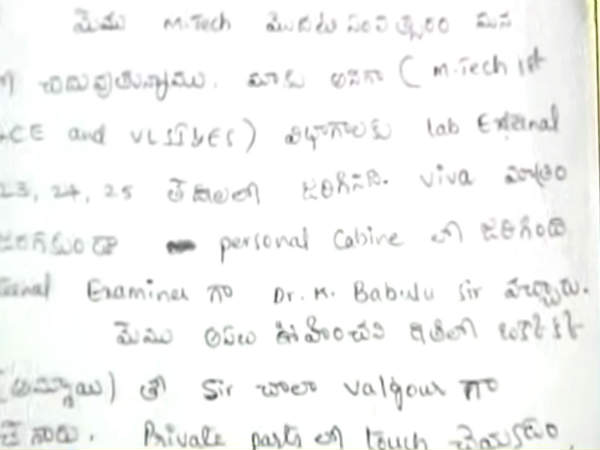 మేము M.Tech మొదటి సంవత్సరం
చదువుతున్నాము. మాకు అనగా ( M.Tech 1st
CE and VLSI &ES) విభాగాలకు lab External
23, 24, 25 తేదిలలో జరిగినది. viva మాత్రం
జరగకుండా personal Cabine లో జరిగింది
Examiner గా Dr. K. Babulu Sir వచ్చారు.
మేము అసలు ఊహించని రీతిలో ఒకొక్క
(అమ్మాయి) తో Sir చాలా valgour గా
Private parts లో touch చేయడం